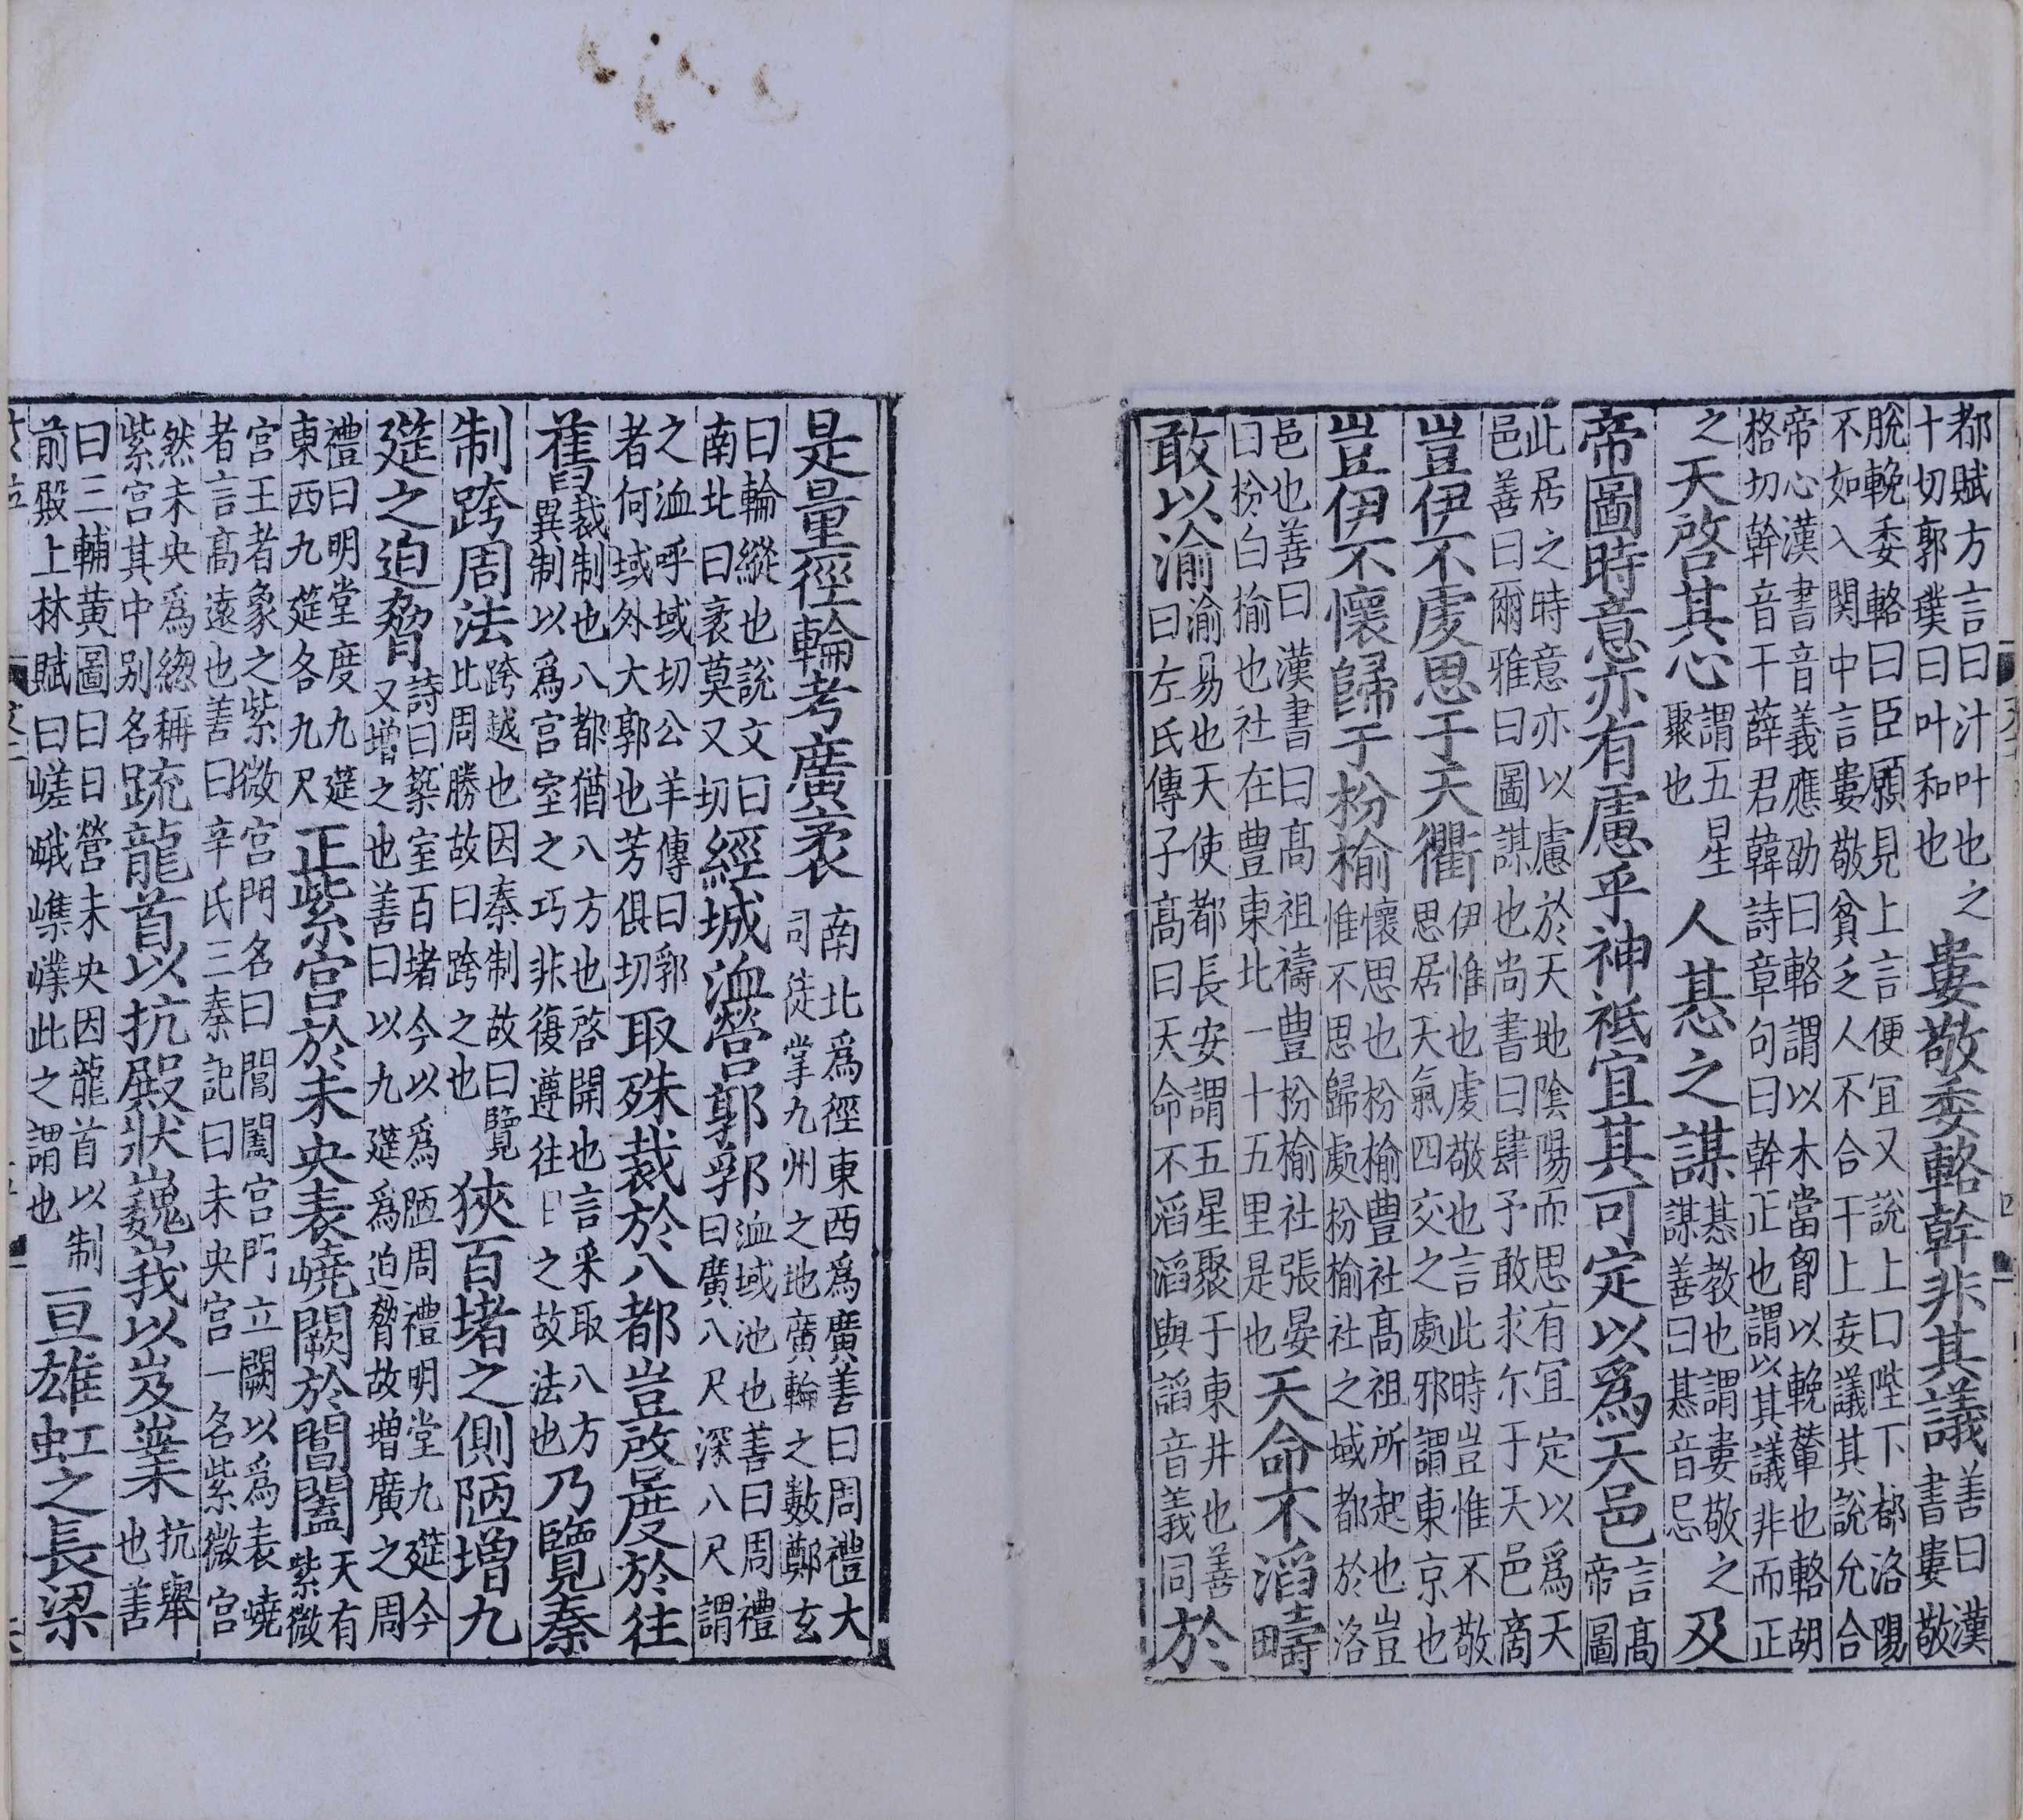 都賦方言曰汁叶也之
十切郭璞曰叶和也婁敬委輅幹非其議善曰漢書婁敬
脫輓委輅曰臣願見上言便宜又說上曰陛下都洛陽
不如入関中言婁敬貧乏人不合干上妄議其說允合
帝心漢書音義應劭曰輅謂以木當胷以輓輦也輅胡
格切幹音干薛君韓詩章句曰幹正也謂以其議非而正
之天啓其心謂五星聚也人惎之謀惎教也謂婁敬之謀善曰惎音忌及
帝圖時意亦有慮乎神祗宜其可定以爲天邑言髙帝圖
此居之時意亦以慮於天地陰陽而思有宜定以爲天
邑善曰爾雅曰圖謀也尚書曰肆予敢求尓于天邑商
豈伊不虔思于天衢伊惟也虔敬也言此時豈惟不敬思居天氣四交之處邪謂東京也
豈伊不懷歸于枌榆懷思也枌榆豊社髙祖所起也豈惟不思歸處枌榆社之域都於洛
邑也善曰漢書曰髙祖禱豊枌榆社張晏
曰枌白榆也社在豊東北一十五里是也天命不滔疇
敢以渝渝易也天使都長安謂五星聚于東井也善曰左氏傳子髙曰天命不滔滔與謟音義同於
是量徑輪考廣袤南北爲徑東西爲廣善曰周禮大司徒掌九州之地廣輪之數鄭玄
曰輪縱也說文曰南北曰袤莫又切經城洫營郭郛洫域池也善曰周禮曰廣八尺深八尺謂
之洫呼域切公羊傳曰郛者何域外大郭也芳俱切取殊裁於八都豈啓度於往
舊裁制也八都猶八方也啓開也言采取八方異制以爲宮室之巧非復遵往之故法也乃覽秦
制跨周法跨越也因秦制故曰覽比周勝故曰跨之也狹百堵之側陋增九
筵之迫脅詩曰築室百堵今以爲陋周禮明堂九筵今又增之也善曰以九筵爲迫脅故增廣之周
禮曰明堂度九筵東西九筵各九尺正紫宮於未央表嶢闕於閶闔天有紫微
宮王者象之紫微宮門名曰閶闔宮門立闕以爲表嶢
者言髙遠也善曰辛氏三秦記曰未央宮一名紫微宮
然未央爲緫稱紫宮其中别名䟽龍首以抗殿狀巍峩以岌嶪抗舉也善
曰三輔黃圖曰日營未央因龍首以制
前殿上林賦曰嵳峨嶕嶫此之謂也亘雄虹之長梁